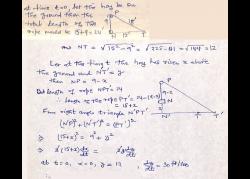 at time t=0, let the boy be on
the ground then the
total length of the
rope would be 15+9=24
P
15
9
N T
⇒ NT = √15²-9² = √225-81 = √144 = 12
Let at the time t the boy has risen x above
the ground and NT'=y
then NP = 9-x
But length of rope NPT'=24
∴ length of the rope PT'=24-(9-x)
=15+x
From right angle triangle N'PT'
(N'P)²+(N'T')²=(PT')²
⇒ (15+x)² = 9²+y²
at t=0, x=0, y=12
P
9-x
N
x
N' T T'